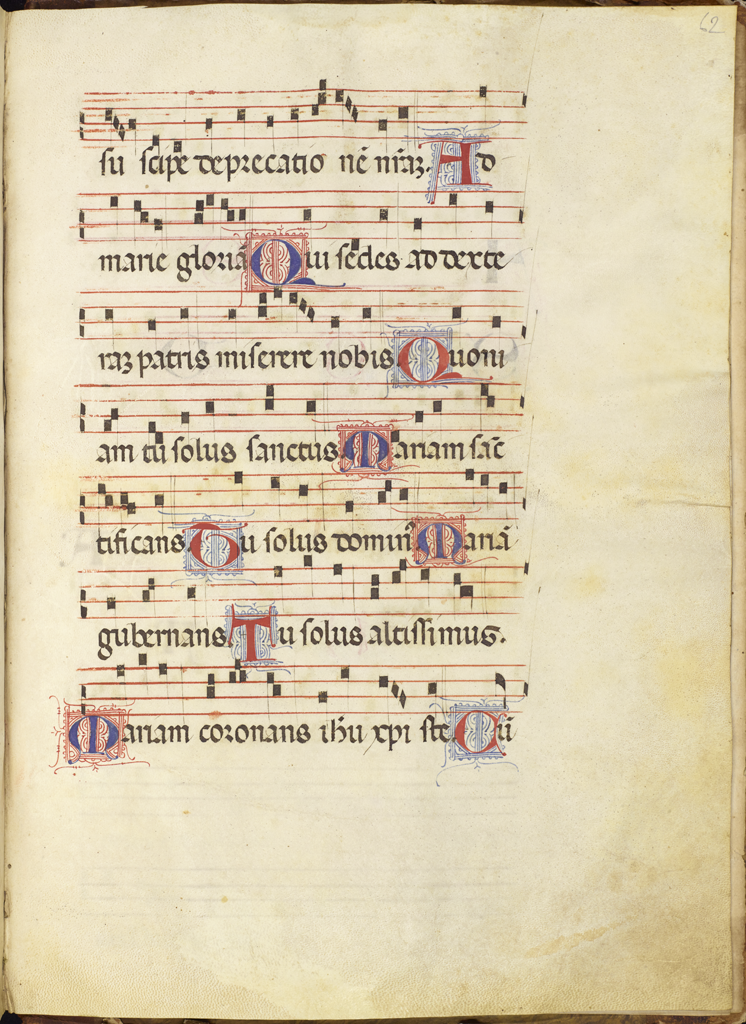 62
su scipe deprecatio nē nr̄aꝫ. Ad
marie gloriā Qui sedes ad dexte
raꝫ patris miserere nobis Quoni
am tu solus sanctus. Mariam sāc
tificans. Tu solus dominꝰ Mariā
gubernans. Tu solus altissimus.
Mariam coronans ihū xpi ste. Cū